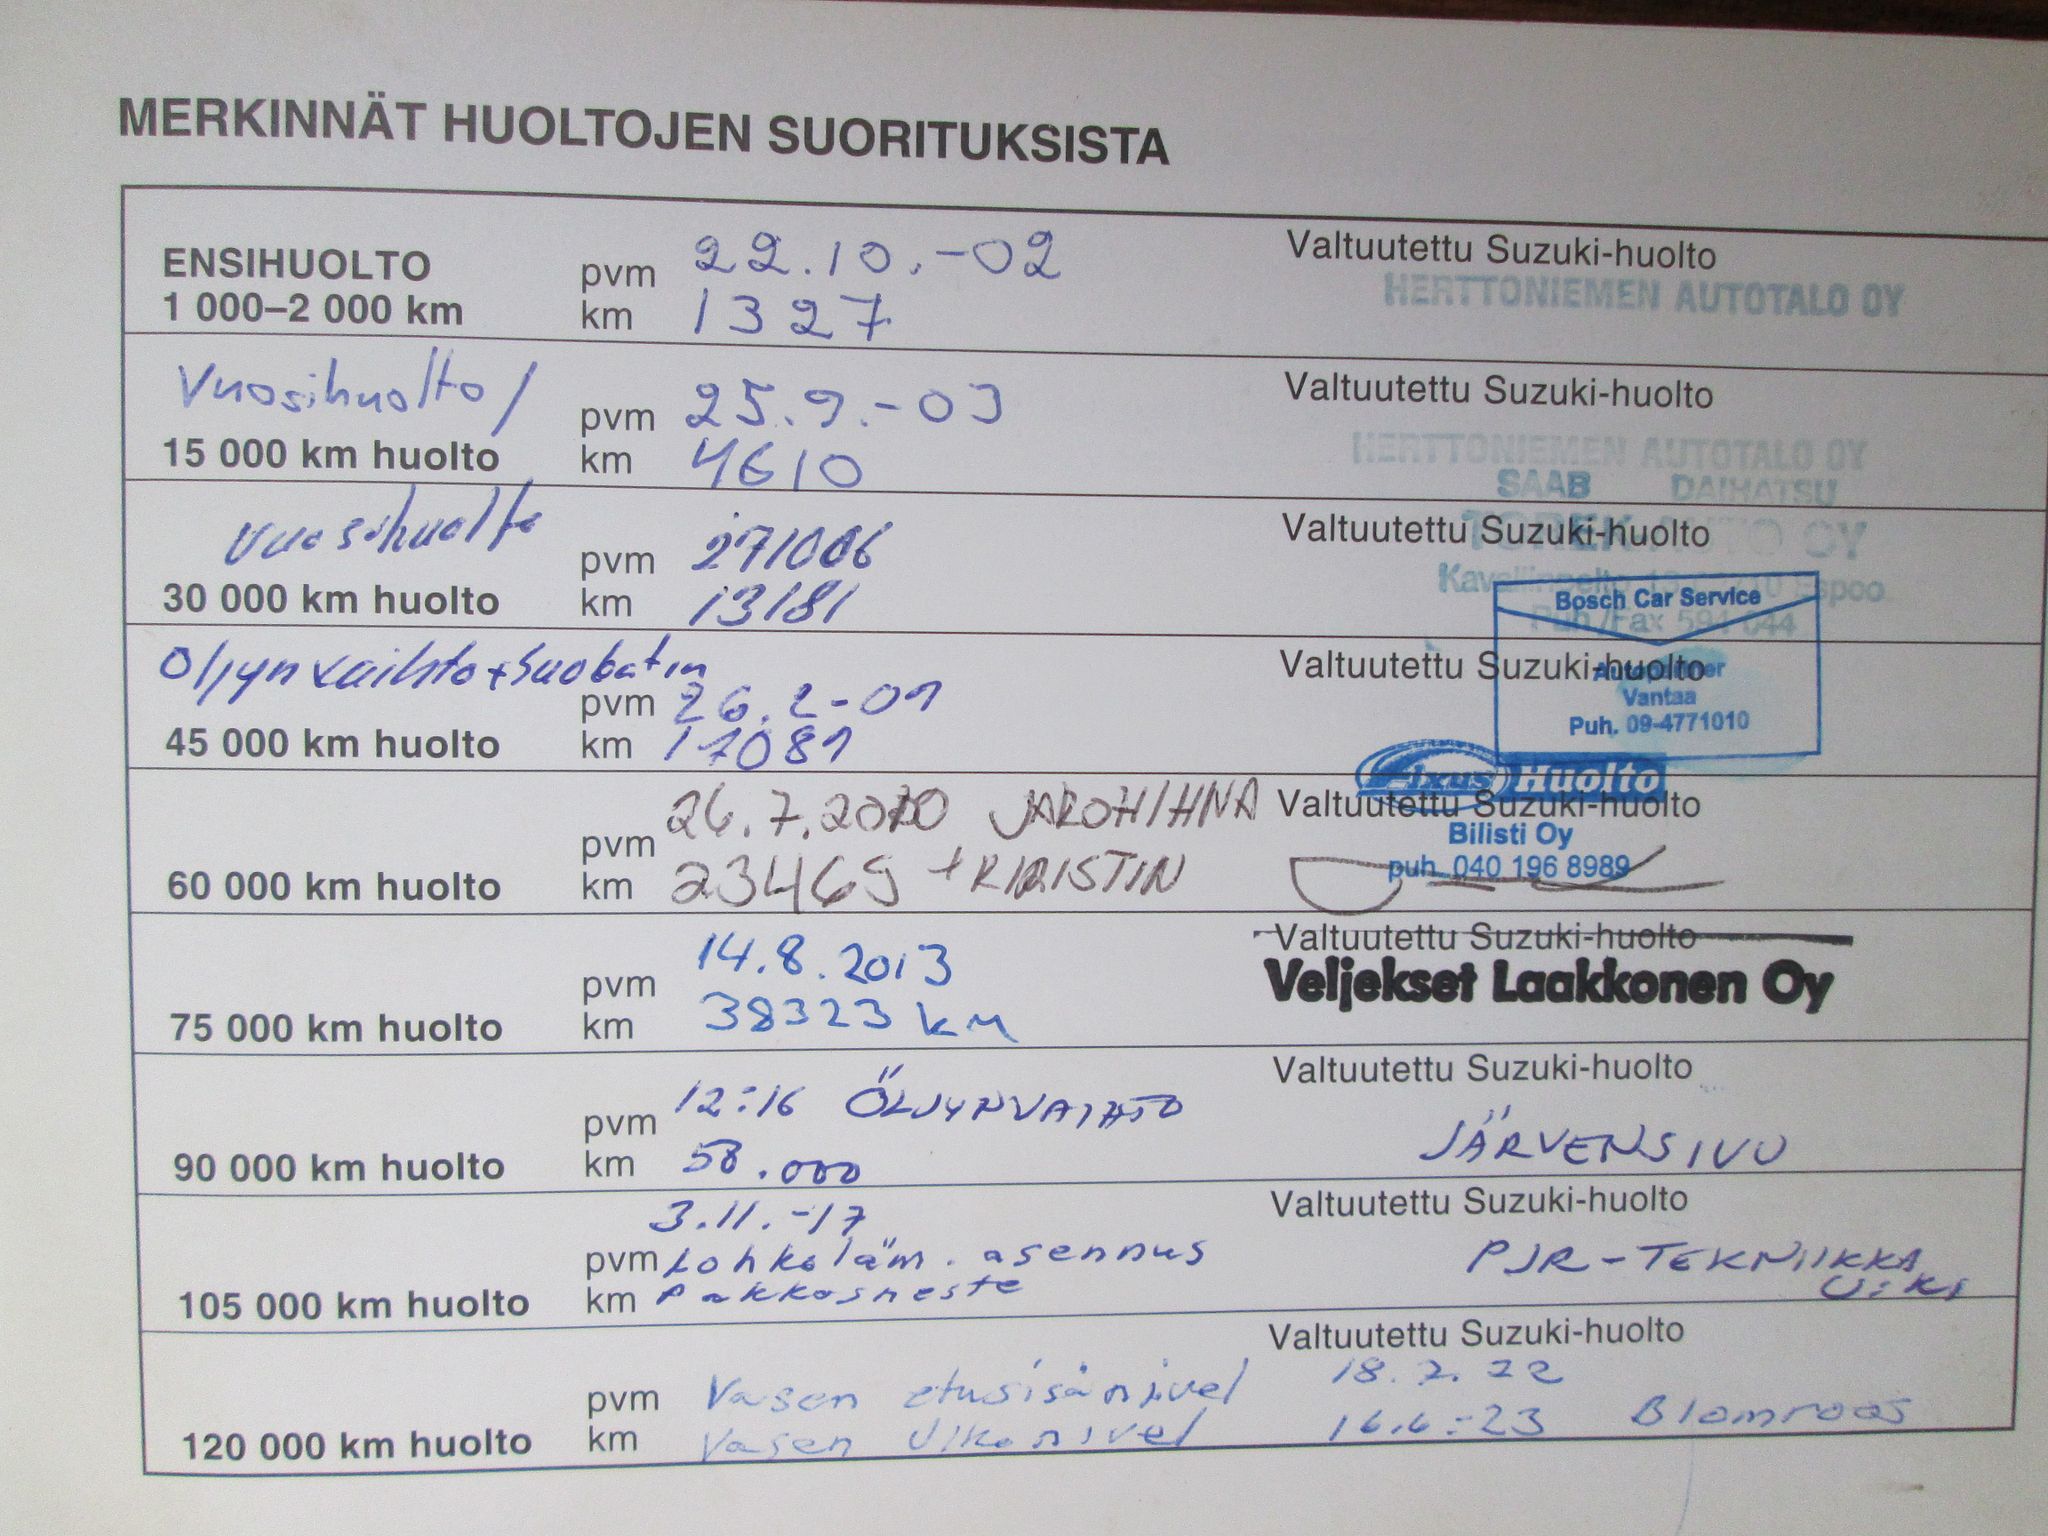 MERKINNÄT HUOLTOJEN SUORITUKSISTA
ENSIHUOLTO pvm 22.10.-02 Valtuutettu Suzuki-huolto
1 000–2 000 km km 1327 HERTTONIEMEN AUTOTALO OY
Vuosihuolto/ pvm 25.9.-03 Valtuutettu Suzuki-huolto
15 000 km huolto km 4610 HERTTONIEMEN AUTOTALO OY
SAAB DAIHATSU
Vuosihuolto pvm 271006 Valtuutettu Suzuki-huolto
TOREK AUTO OY
30 000 km huolto km 13181
Espoo
Puh./Fax 594 044
Bosch Car Service
Öljynvaihto + suodatin pvm 26.2-09 Valtuutettu Suzuki-huolto
Vantaa
Puh. 09-4771010
45 000 km huolto km 17089
Fixus Huolto
pvm 26.7.2010 JAKOHIHNA Valtuutettu Suzuki-huolto
Bilisti Oy
60 000 km huolto km 23469 + KIRISTIN puh. 040 196 8989
pvm 14.8.2013 Valtuutettu Suzuki-huolto
Veljekset Laakkonen Oy
75 000 km huolto km 38323 km
pvm 12:16 ÖLJYNVAIHTO Valtuutettu Suzuki-huolto
90 000 km huolto km 58.000 JÄRVENSIVU
3.11.-17 Valtuutettu Suzuki-huolto
pvm Lohkoläm. asennus PJR-TEKNIIKKA
105 000 km huolto km Pakkasneste
Valtuutettu Suzuki-huolto
pvm Vasen etusisänivel 18.2.22
120 000 km huolto km Vasen ulkonivel 16.6.-23 Blomroos